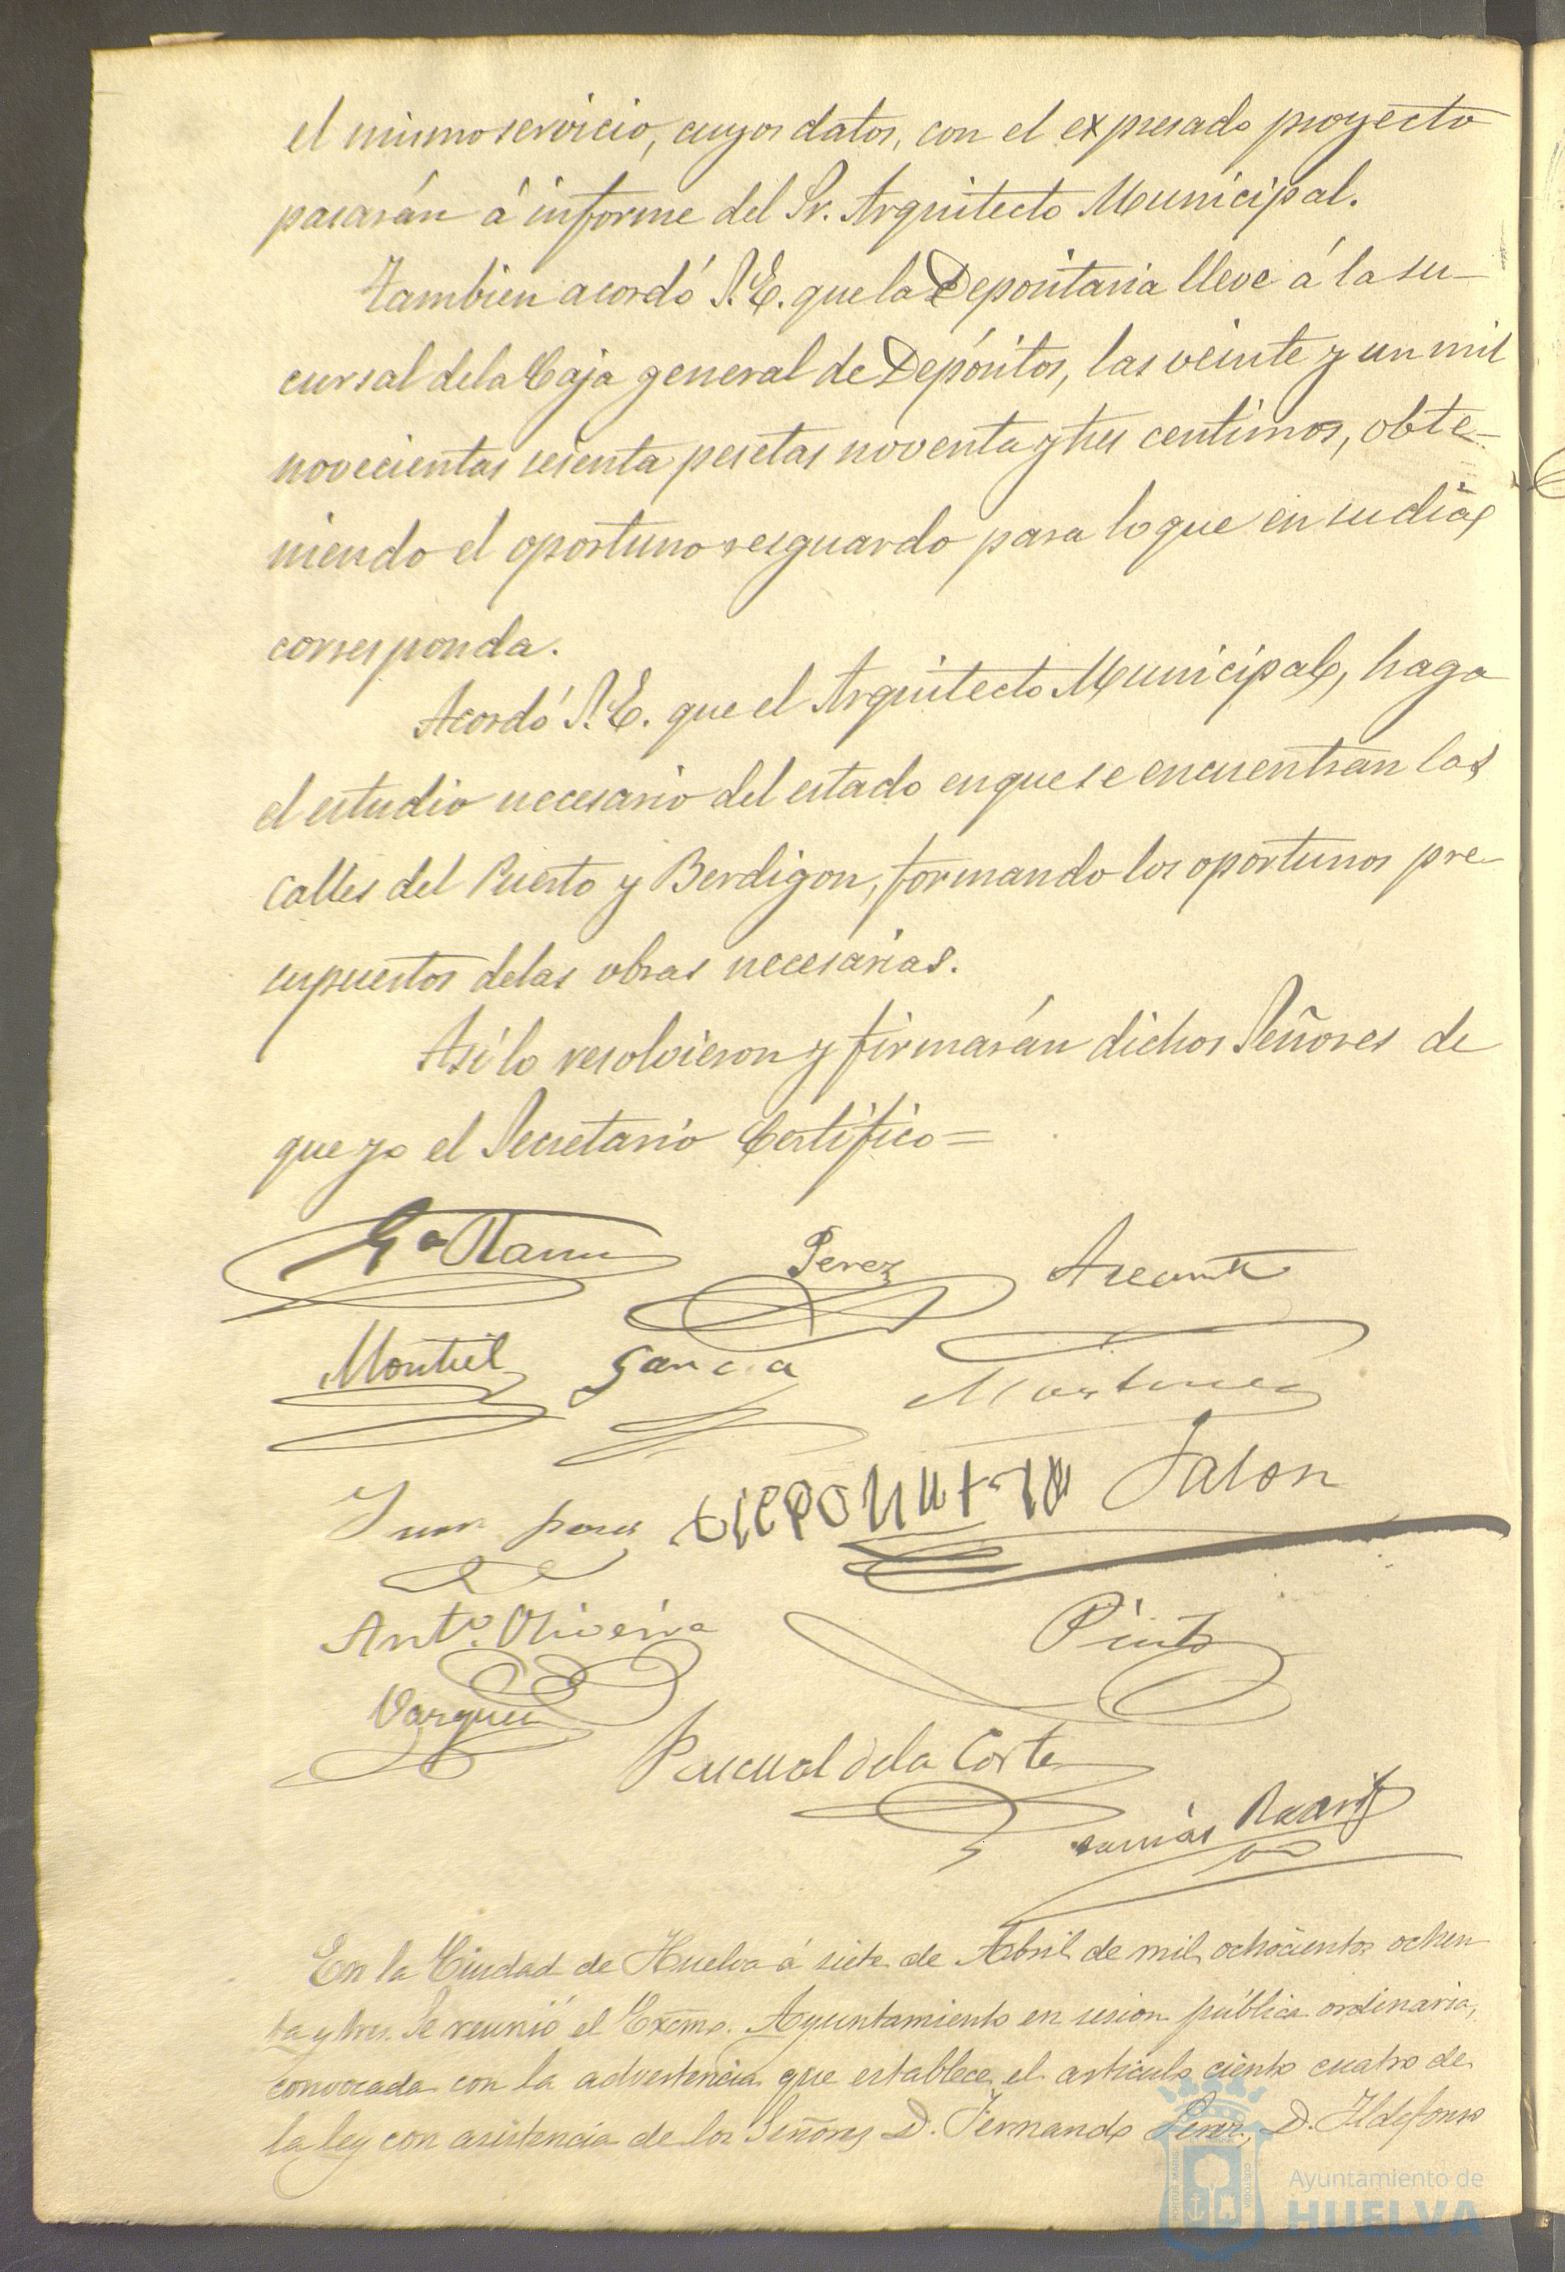 el mismo servicio, cuyos datos, con el expresado proyecto
pasarán á informe del Sr. Arquitecto Municipal.
Tambien acordó S.E. que la Depositaria lleve á la su-
cursal de la Caja general de Depósitos, las veinte y un mil
novecientas sesenta pesetas noventa y tres centimos, obte-
niendo el oportuno resguardo para lo que en su dia
corresponda.
Acordó S.E. que el Arquitecto Municipal, haga
el estudio necesario del estado en que se encuentran las
calles del Puerto y Berdigon, formando los oportunos pre-
supuestos de las obras necesarias.
Asi lo resolvieron y firmarán dichos Señores de
que yo el Secretario Certifico=
Gª Ramos Perez
Montiel Garcia Martinez
Juan Jalon
Antº. Oliveira Pinto
Vazquez
Pascual de la Corte
En la Ciudad de Huelva á siete de Abril de mil ochocientos ochen
ta y tres. Se reunió el Excmo. Ayuntamiento en sesion pública ordinaria,
convocada con la advertencia que establece el articulo ciento cuatro de
la ley con asistencia de los Señores D. Fernando Perez, D. Ildefonso
Ayuntamiento de
HUELVA